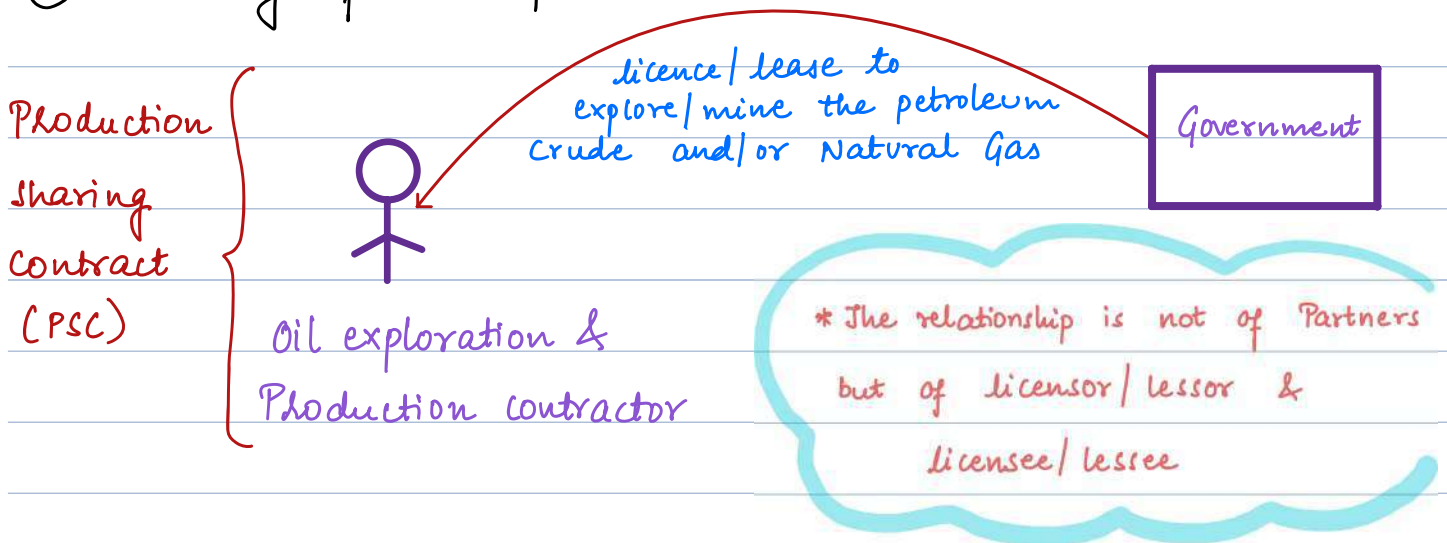 Production
Sharing
Contract
(PSC)
licence/lease to
explore/mine the petroleum
Crude and/or Natural Gas
Government
Oil exploration &
Production contractor
* The relationship is not of Partners
but of licensor/lessor &
licensee/lessee